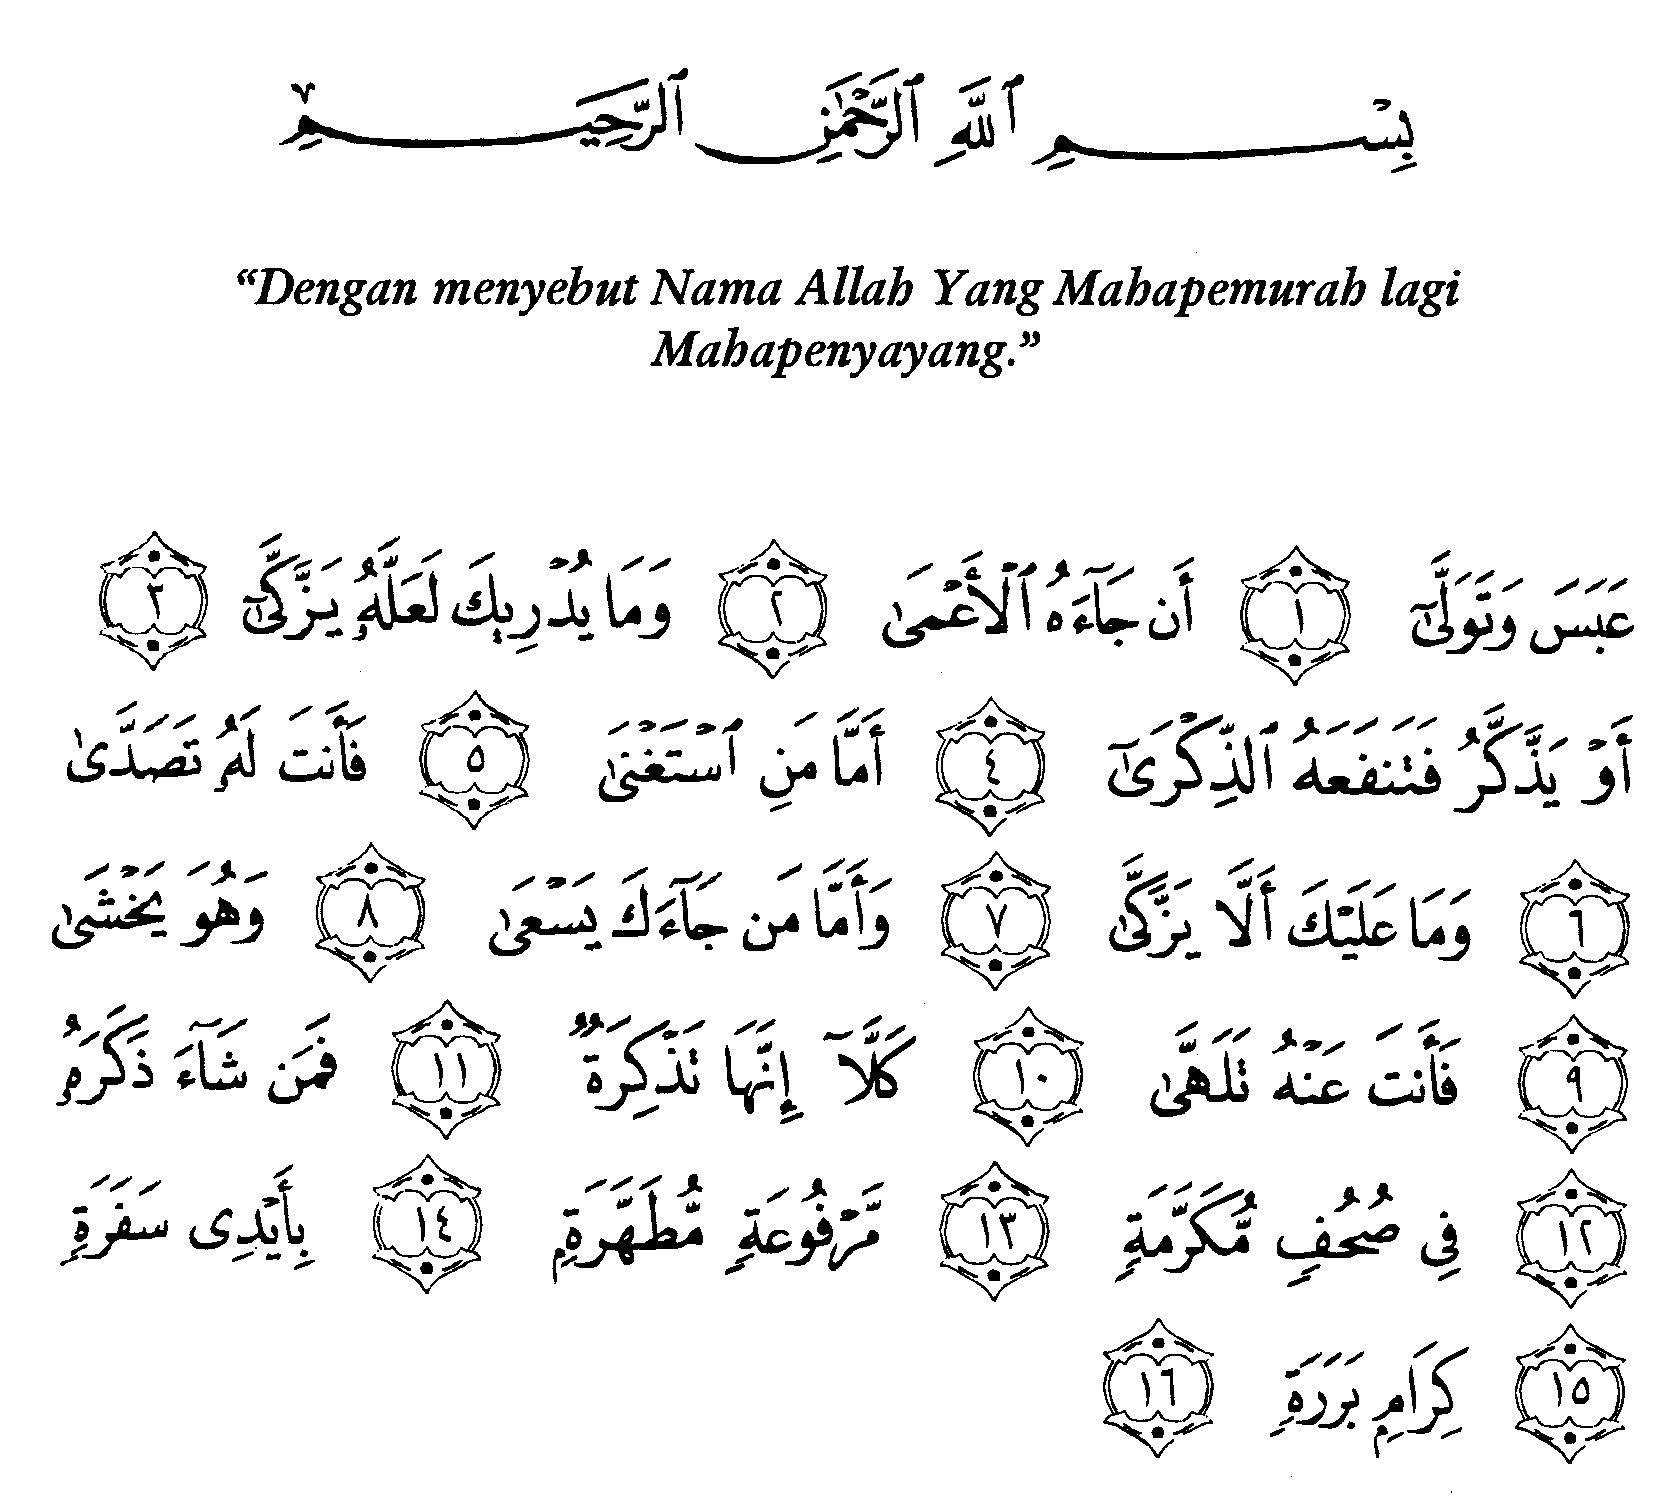 بِسْمِ ٱللَّهِ ٱلرَّحْمَٰنِ ٱلرَّحِيمِ
“Dengan menyebut Nama Allah Yang Mahapemurah lagi
Mahapenyayang.”
عَبَسَ وَتَوَلَّىٰٓ ١ أَن جَآءَهُ ٱلْأَعْمَىٰ ٢ وَمَا يُدْرِيكَ لَعَلَّهُۥ يَزَّكَّىٰٓ ٣
أَوْ يَذَّكَّرُ فَتَنفَعَهُ ٱلذِّكْرَىٰٓ ٤ أَمَّا مَنِ ٱسْتَغْنَىٰ ٥ فَأَنتَ لَهُۥ تَصَدَّىٰ
٦ وَمَا عَلَيْكَ أَلَّا يَزَّكَّىٰ ٧ وَأَمَّا مَن جَآءَكَ يَسْعَىٰ ٨ وَهُوَ يَخْشَىٰ
٩ فَأَنتَ عَنْهُ تَلَهَّىٰ ١٠ كَلَّآ إِنَّهَا تَذْكِرَةٌ ١١ فَمَن شَآءَ ذَكَرَهُۥ
١٢ فِى صُحُفٍ مُّكَرَّمَةٍ ١٣ مَّرْفُوعَةٍ مُّطَهَّرَةٍۭ ١٤ بِأَيْدِى سَفَرَةٍ
١٥ كِرَامٍۭ بَرَرَةٍ ١٦